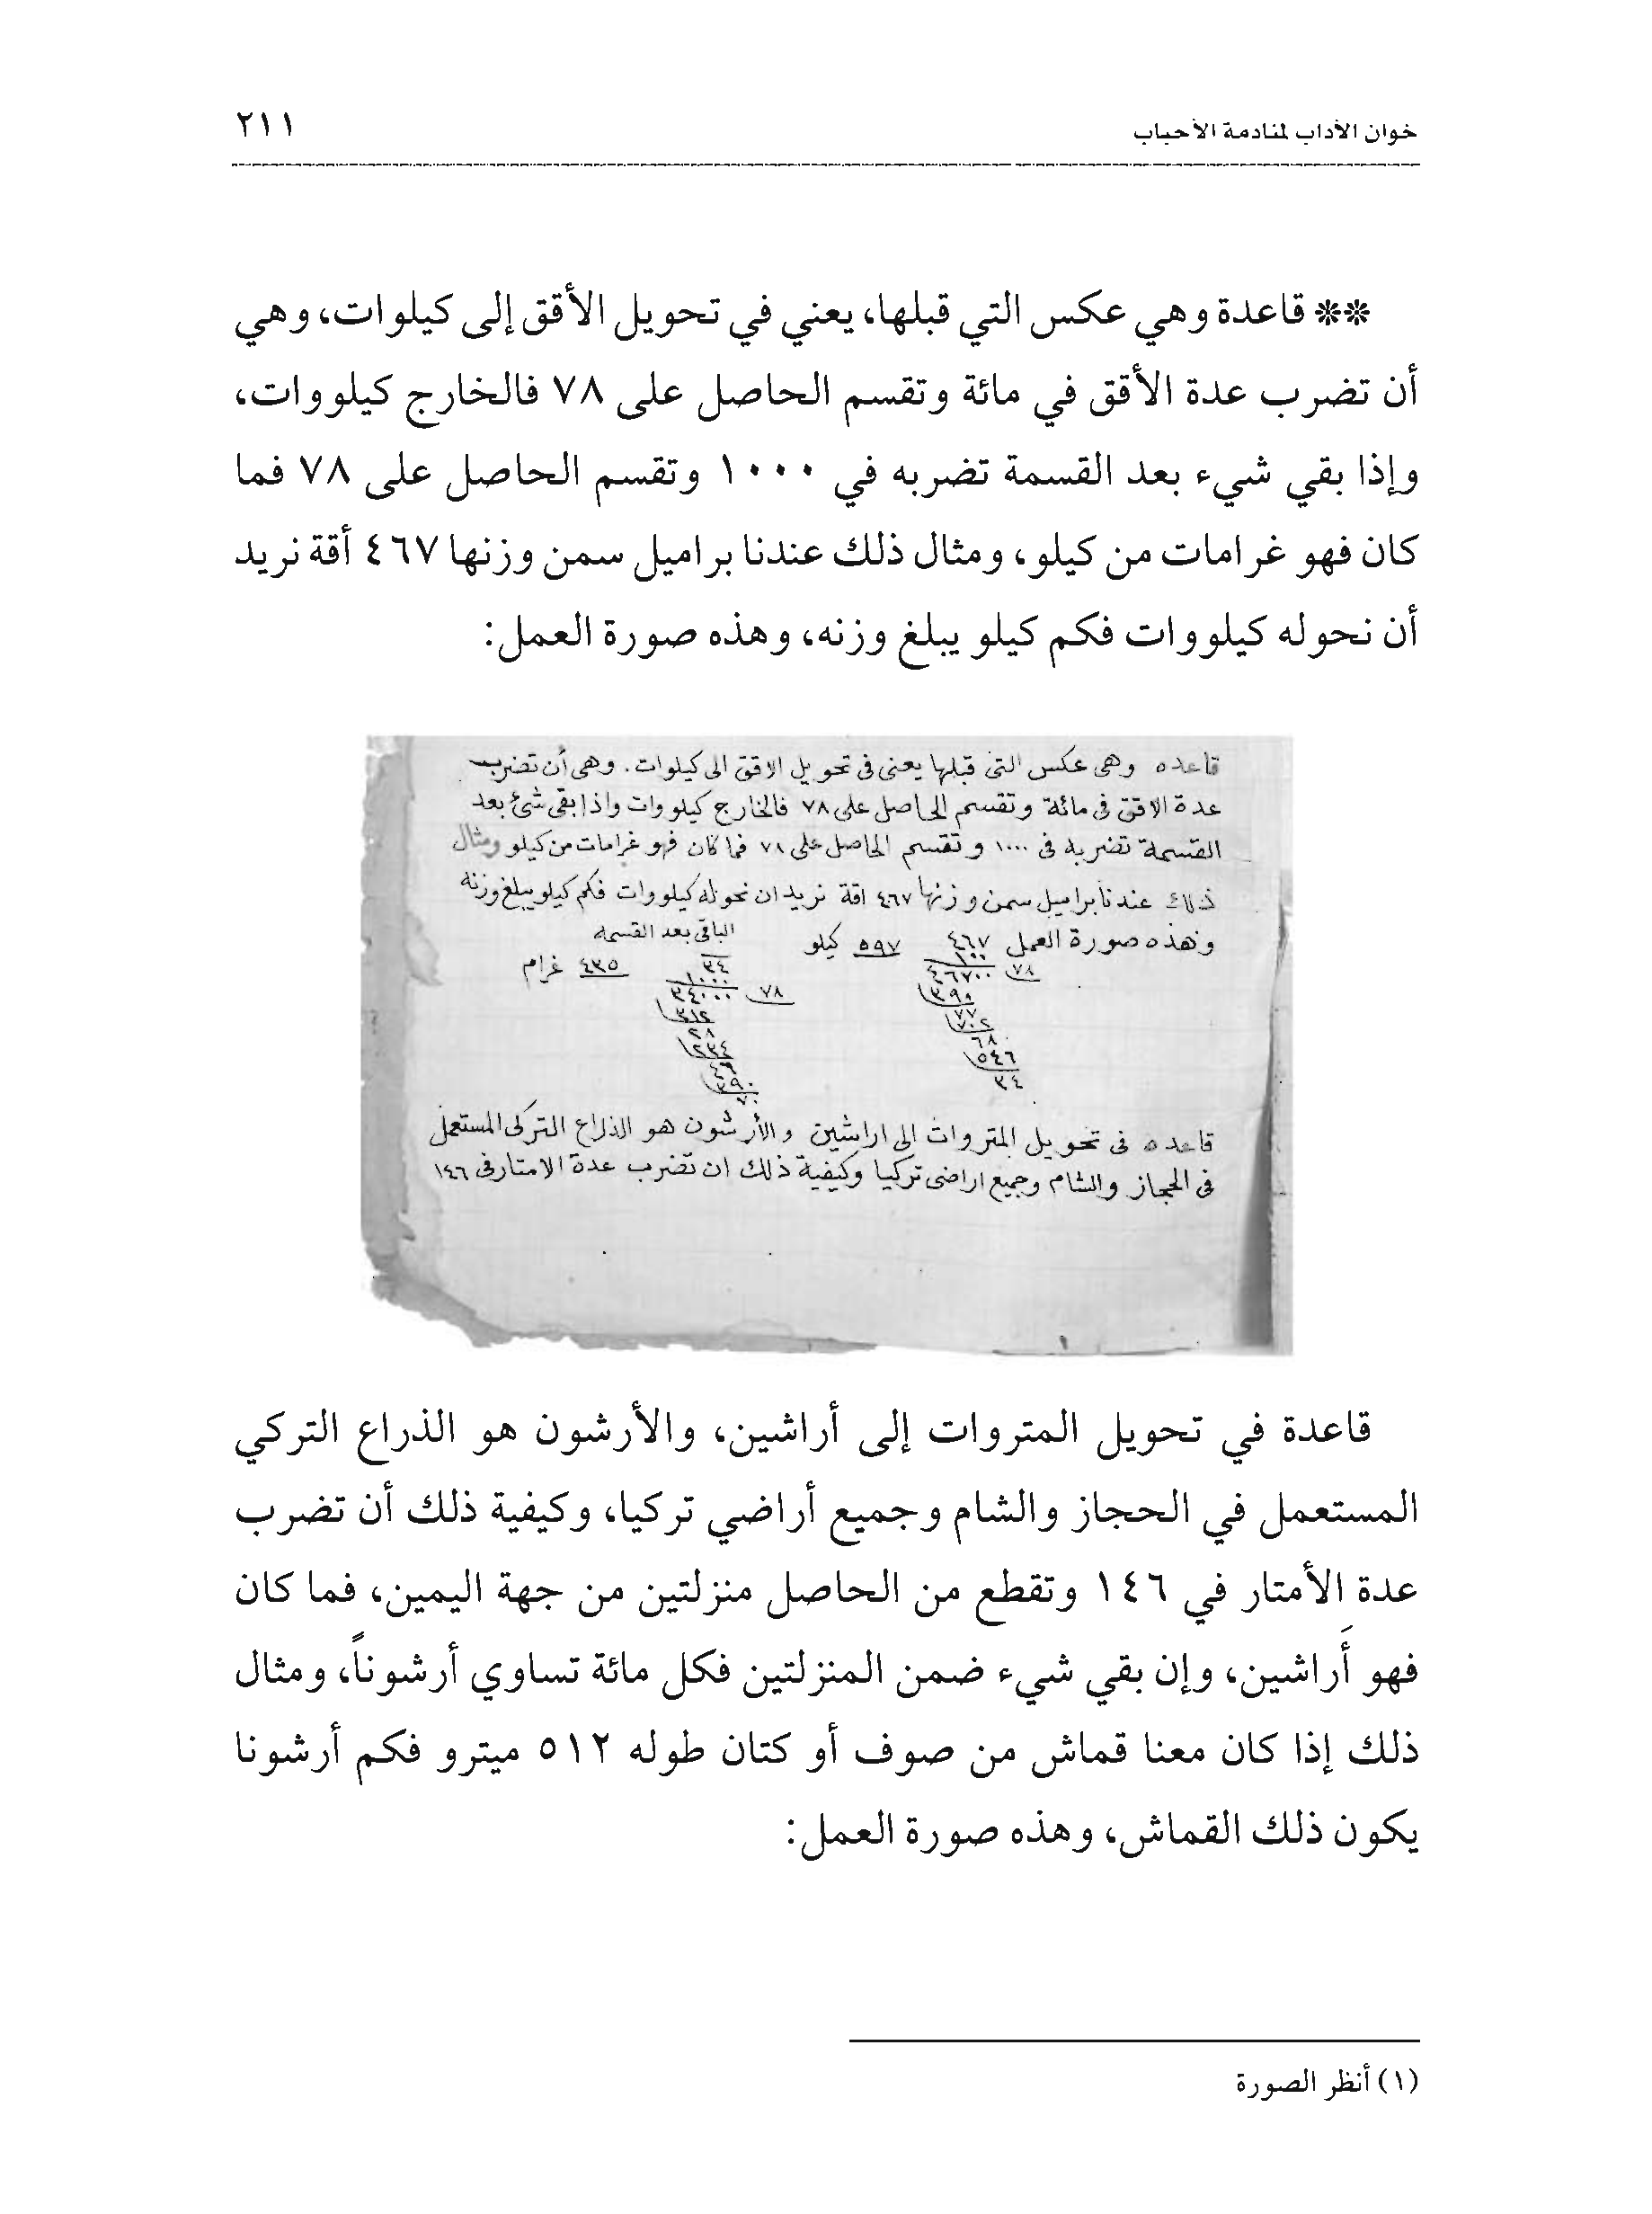 خوان الآداب لمنادمة الأحباب ٢١١
** قاعدة وهي عكس التي قبلها، يعني في تحويل الأقق إلى كيلوات، وهي
أن تضرب عدة الأقق في مائة وتقسم الحاصل على ٧٨ فالخارج كيلووات،
وإذا بقي شيء بعد القسمة تضربه في ١٠٠٠ وتقسم الحاصل على ٧٨ فما
كان فهو غرامات من كيلو، ومثال ذلك عندنا براميل سمن وزنها ٤٦٧ أقة نريد
أن نحوله كيلووات فكم كيلو يبلغ وزنه، وهذه صورة العمل:
قاعده وهى عكس التى قبلها يعنى فى تحويل الاقق الى كيلوات. وهى أن تضرب
عدة الاقق فى مائة وتقسم الحاصل على ٧٨ فالخارج كيلووات واذا بقى شئ بعد
القسمة تضربه فى ١٠٠٠ وتقسم الحاصل على ٧٨ فما كان فهو غرامات من كيلو ومثال
ذلك عندنا براميل سمن وزنها ٤٦٧ اقة نريد ان نحوله كيلووات فكم كيلو يبلغ وزنه
وهذه صورة العمل ٤٦٧ ٥٩٧ كيلو الباقى بعد القسمه
١٠٠ ٣٤ ٤٣٥ غرام
٧٨ ٤٦٧٠٠ ١٠٠٠
٣٩٠ ٧٨ ٣٤٠٠٠
٧٧ ٣١٢
٧٠٢ ٢٨
٦٨ ٢٣٤
٥٤٦ ٤٦
٣٤ ٣٩٠
٧٠
قاعده فى تحويل المتروات الى اراشين والأرشون هو الذراع التركى المستعمل
فى الحجاز والشام وجميع اراضى تركيا وكيفية ذلك ان تضرب عدة الامتار فى ١٤٦
قاعدة في تحويل المتروات إلى أراشين، والأرشون هو الذراع التركي
المستعمل في الحجاز والشام وجميع أراضي تركيا، وكيفية ذلك أن تضرب
عدة الأمتار في ١٤٦ وتقطع من الحاصل منزلتين من جهة اليمين، فما كان
فهو أَراشين، وإن بقي شيء ضمن المنزلتين فكل مائة تساوي أرشوناً، ومثال
ذلك إذا كان معنا قماش من صوف أو كتان طوله ٥١٢ ميترو فكم أرشونا
يكون ذلك القماش، وهذه صورة العمل:
(١) أنظر الصورة